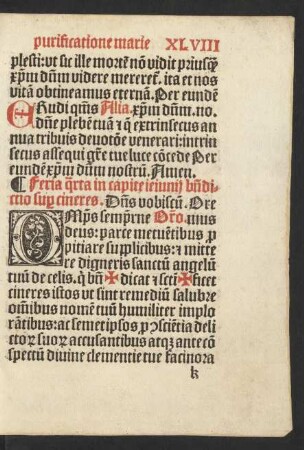 purificatione marie XLVIII
plesti: vt sic ille mortē nō vidit priusq̃
xp̃m dñm videre mereret᷑. ita et nos
vitā obtineamus eternā. Per eundē
ERudi qm̃s Alia. xp̃m dñm. no.
dñe plebē tuā: ⁊ q̄ extrinsecus an
nua tribuis deuotōe venerari: intrin
secus assequi gr̃e tue luce cōcede Per
eundē xp̃m dñm nostrū. Amen.
¶ Feria q̄rta in capite ieiunij bñdi
ctio suꝑ cineres. Dñs vobiscū. Ore
OMp̃s sempr̃ne Oro. mus
deus: parce metuētibus ꝓ
pitiare supplicibus: ⁊ mitte
re digneris sanctū angelū
tuū de celis. q̇ bñ✠dicat ⁊ sctī✠ficet
cineres istos vt sint remediū salubre
oīnibus nomē tuū humiliter implo
rātibus: ac semetipsos ꝓ ꝯsciētia deli
ctoꝝ suoꝝ accusantibus atqꝫ ante cō
spectū diuine clementie tue facinora
k